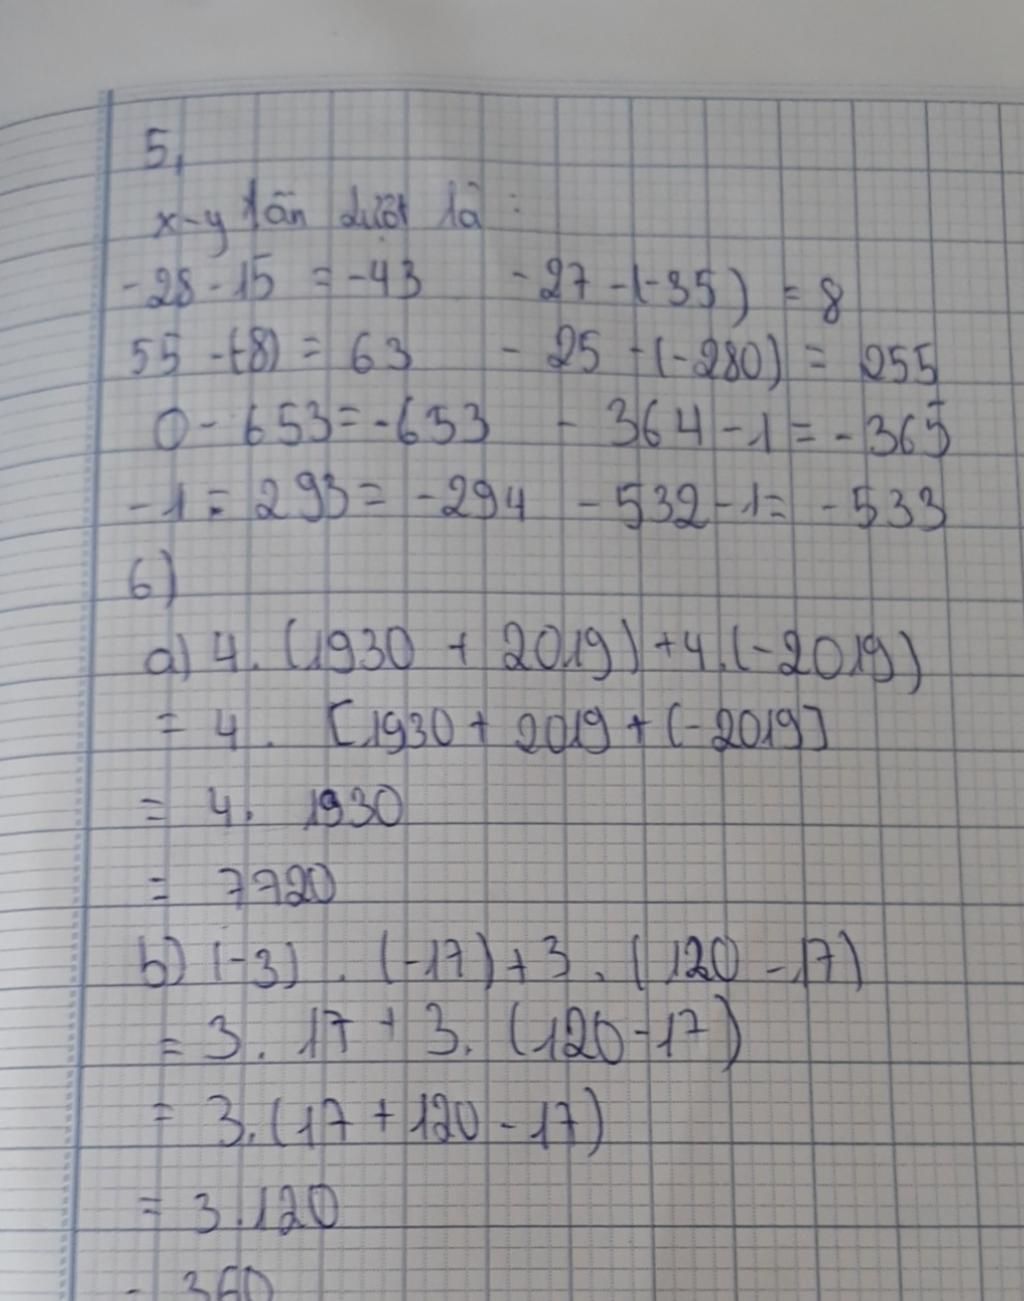 5,
x-y lần lượt là :
-28 - 15 = -43 -27 -(-35) = 8
55 -(-8) = 63 -25 -(-280) = 255
0 - 653 = -653 -364 - 1 = -365
-1 - 293 = -294 -532 - 1 = -533
6)
a) 4. (1930 + 2019) + 4.(-2019)
= 4. [1930 + 2019 + (-2019]
= 4. 1930
= 7720
b) (-3) . (-17) + 3 . (120 - 17)
= 3. 17 + 3. (120 - 17)
= 3.(17 + 120 - 17)
= 3.120
= 360